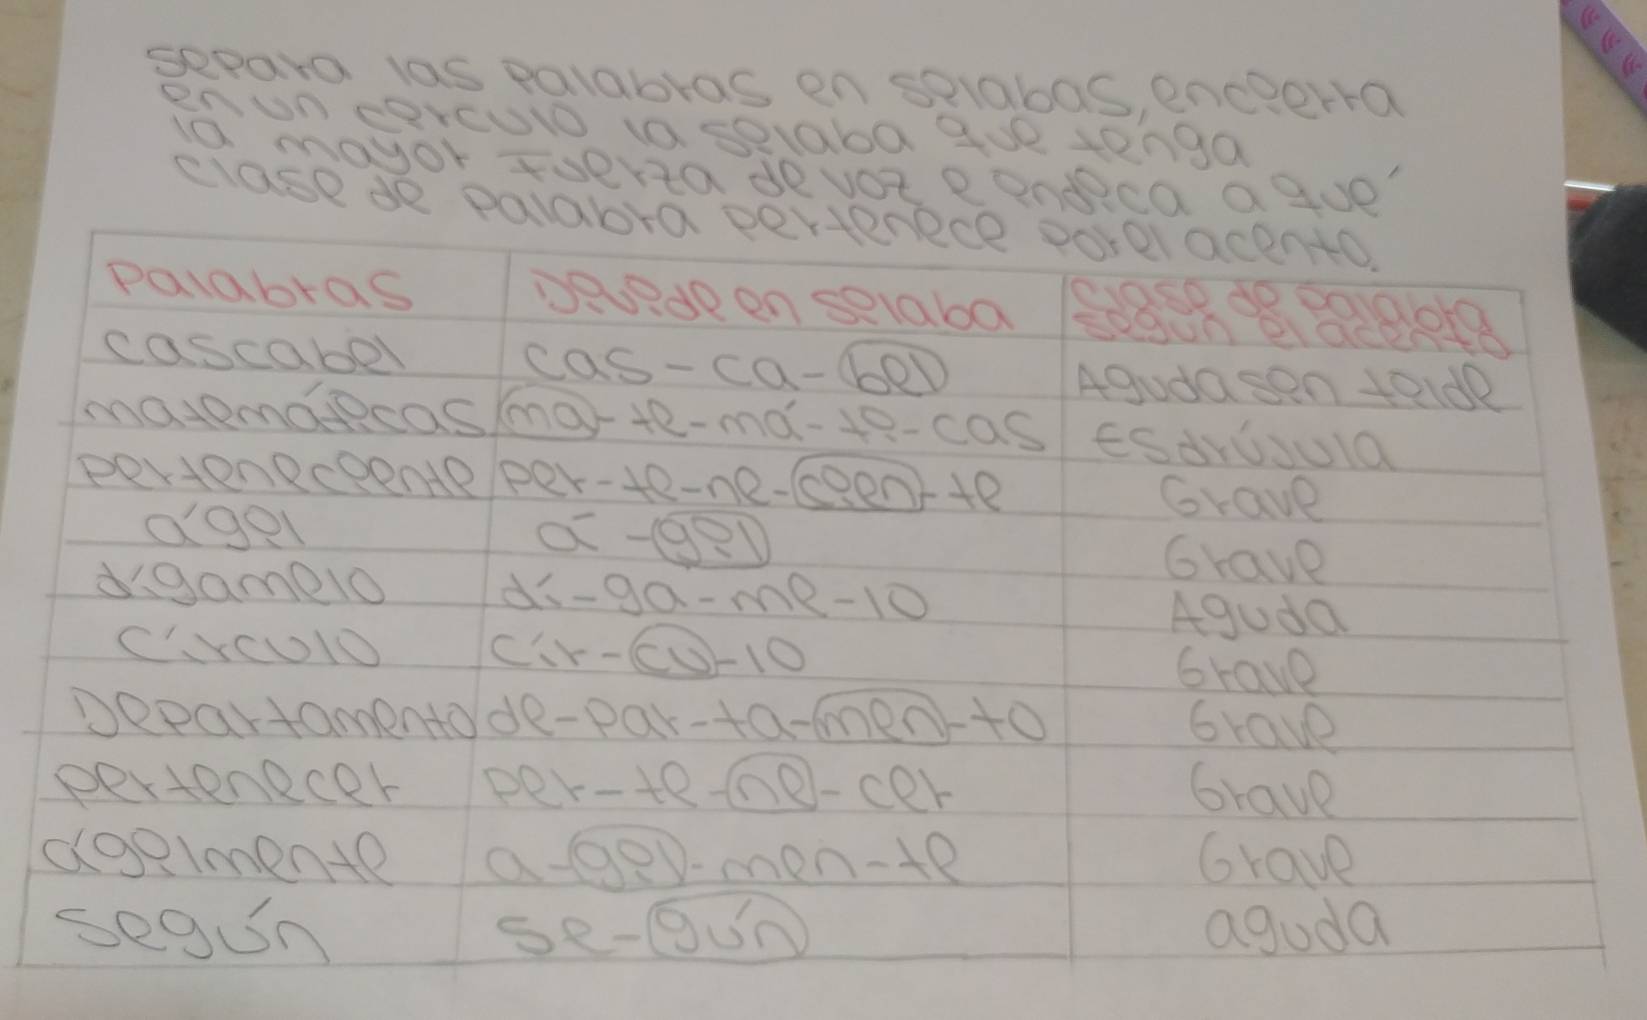 separa las palabras en selabas, enceerra
en un cerculo la selaba que tenga
la mayor fuerza de voz e endeca a qué
clase de palabra pertenece por el acento.
Palabras Devede en selaba Clase de palabra
segun el acento
cascabel cas-ca-bel Aguda sen telde
matemátecas ma-te-má-te-cas Esdrújula
perteneceente per-te-ne-ceen-te Grave
ágel á-gel Grave
dígamelo dí-ga-me-lo Aguda
Círculo Cír-cu-lo Grave
Departamento de-par-ta-men-to Grave
pertenecer per-te-ne-cer Grave
ágelmente a-gel-men-te Grave
según se-gún aguda